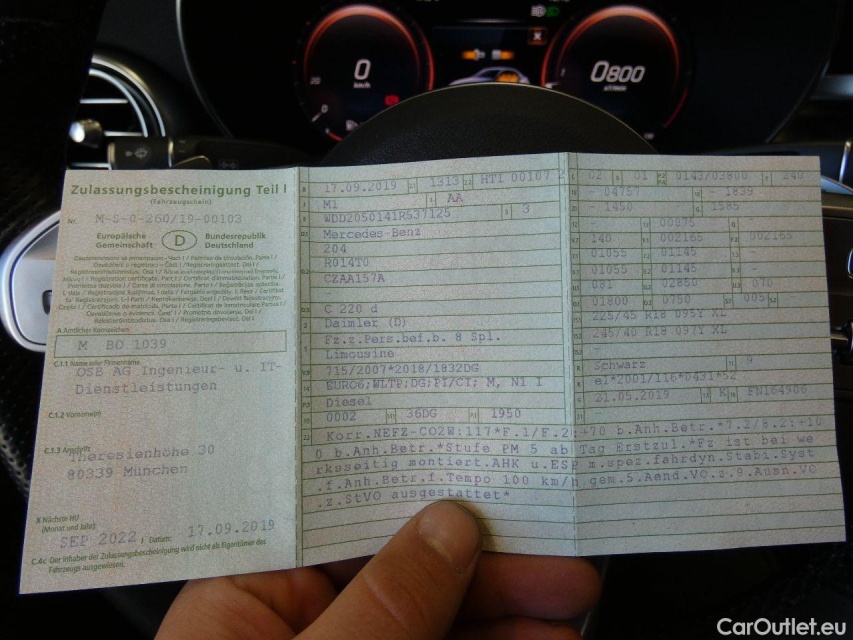 0
km/h
0800
Zulassungsbescheinigung Teil I
(Fahrzeugschein)
Nr. M-S-0-260/19-00103
Europäische Gemeinschaft
D
Bundesrepublik Deutschland
A Amtliches Kennzeichen
M BO 1039
C.1.1 Name oder Firmenname
OSB AG Ingenieur- u. IT-
Dienstleistungen
C.1.2 Vorname(n)
C.1.3 Anschrift
Theresienhöhe 30
80339 München
X Nächste HU
(Monat und Jahr)
SEP 2022
I Datum: 17.09.2019
C.4c Der Inhaber der Zulassungsbescheinigung wird nicht als Eigentümer des
Fahrzeugs ausgewiesen.
17.09.2019 1313 HTI 00107 2
M1 AA
WDD2050141R537125 3
Mercedes-Benz
204
R014T0
CZAA157A
-
C 220 d
Daimler (D)
Fz.z.Pers.bef.b. 8 Spl.
Limousine
715/2007*2018/1832DG
EURO6;WLTP;DG;PI/CI; M, N1 I
Diesel
0002 36DG 1950
02 01 0143/03800 240
- 04757 - 1839
1450 - 1585
- 00075 -
140 002165 002165
01055 01145 -
01055 01145 -
081 02850 070
01800 0750 005
225/45 R18 095Y XL
245/40 R18 097Y XL
-
-
Schwarz 9
e1*2001/116*0431*52
21.05.2019 K FN164906
Korr.NEFZ-CO2W:117*F.1/F.2:+70 b.Anh.Betr.*7.2/8.2:+10
0 b.Anh.Betr.*Stufe PM 5 ab Tag Erstzul.*Fz ist bei we
rksseitig montiert.AHK u.ESP m.spez.fahrdyn.Stabi.Syst
.f.Anh.Betr.f.Tempo 100 km/h gem.5.Aend.VO.z.9.Ausn.VO
.z.StVO ausgestattet*
CarOutlet.eu